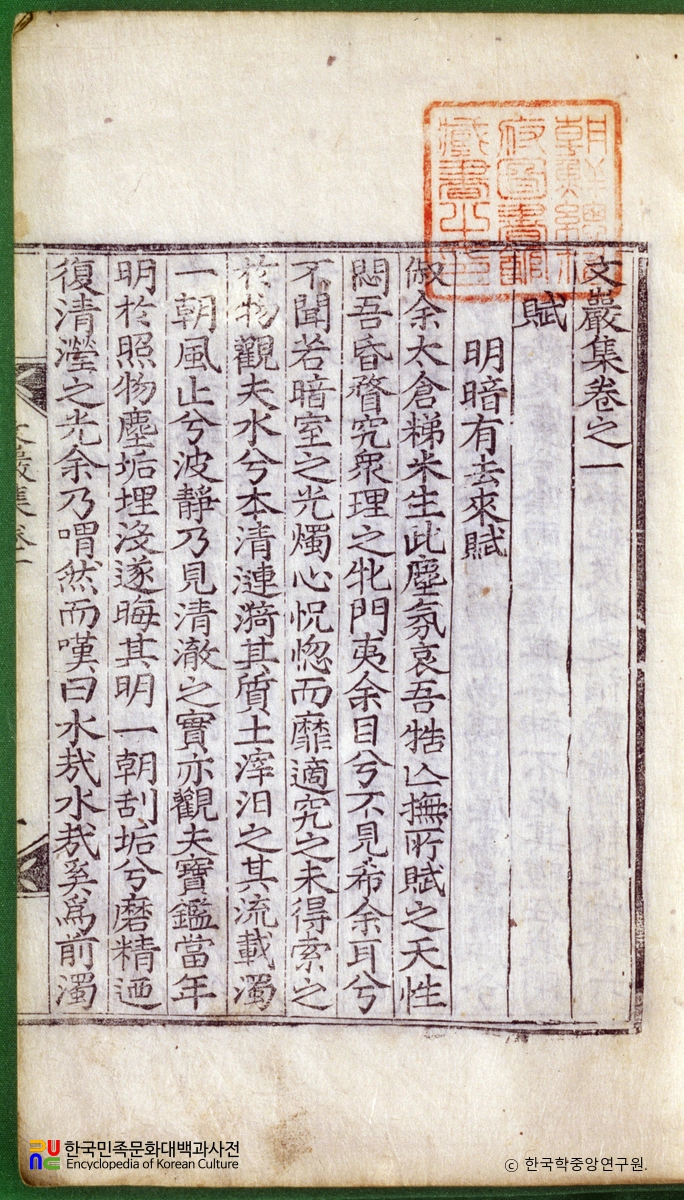 文巖集卷之一
賦
明暗有去來賦
俶余太倉稊米生此塵氛哀吾牿亾撫所賦之天性
悶吾昏瞀究衆理之牝門夷余目兮不見希余耳兮
不聞若暗室之光燭心怳惚而靡適究之未得索之
於物觀夫水兮本清漣漪其質土滓汨之其流載濁
一朝風止兮波靜乃見清澈之實亦觀夫寶鑑當年
明於照物塵垢埋沒遂晦其明一朝刮垢兮磨精迺
復清瀅之光余乃喟然而嘆曰水㢤水㢤奚爲前濁
文巖集卷一
朝鮮總督
府圖書館
藏書之印
한국민족문화대백과사전
Encyclopedia of Korean Culture
© 한국학중앙연구원.